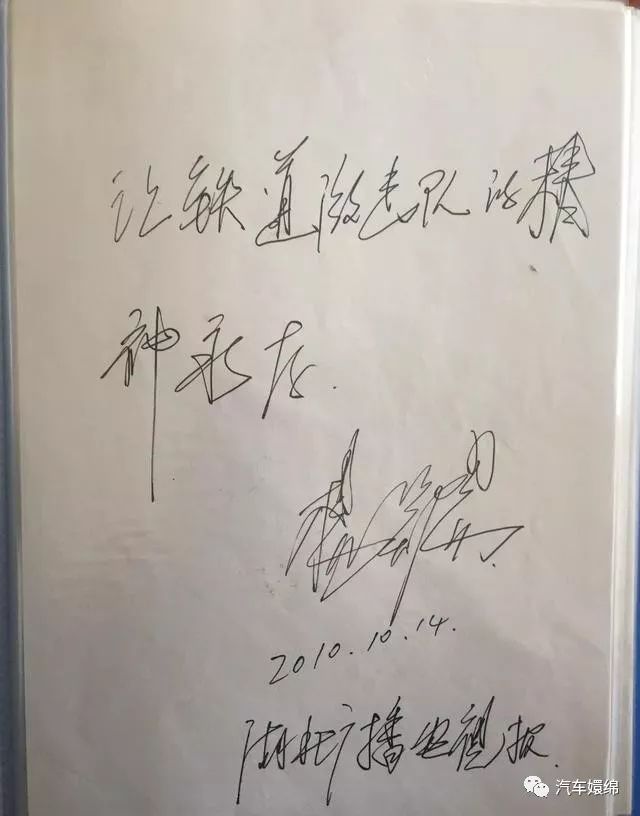 让铁道游击队的精
神永存.
2010.10.14.
湖北广播电视报.
汽车嬛绵